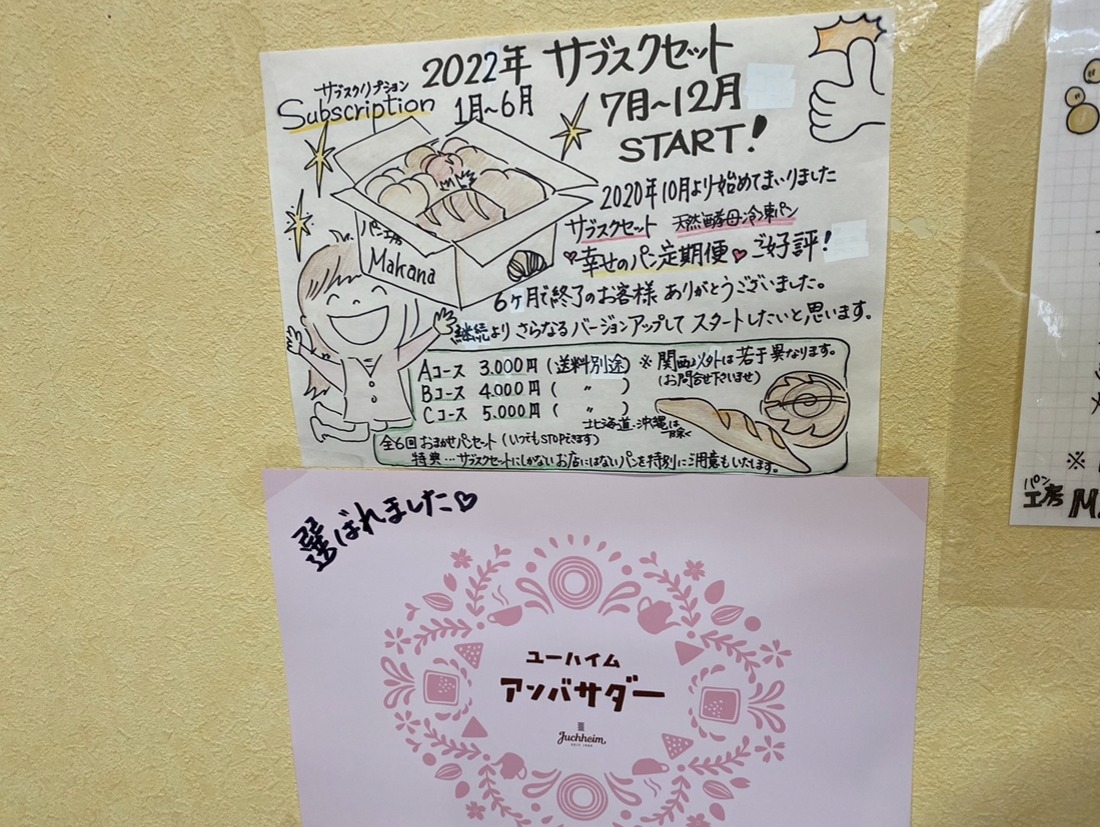 2022年 サブスクセット
サブスクリプション
Subscription
1月~6月
7月~12月
START!
2020年10月より始めてまいりました
サブスクセット 天然酵母冷凍パン
♥幸せのパン定期便♥ご好評!
パン工房
Makana
6ヶ月で終了のお客様 ありがとうございました。
継続より さらなるバージョンアップして スタートしたいと思います。
Aコース 3.000円(送料別途) ※関西以外は若干異なります。
(お問合せ下さいませ)
Bコース 4.000円( 〃 )
Cコース 5.000円( 〃 )
北海道・沖縄は除く
全6回 おまかせパンセット(いつでもSTOPできます)
特典…サブスクセットにしかないお店にはないパンを特別にご用意もいたします。
選ばれました♡
ユーハイム
アンバサダー
Juchheim
※
パン
工房